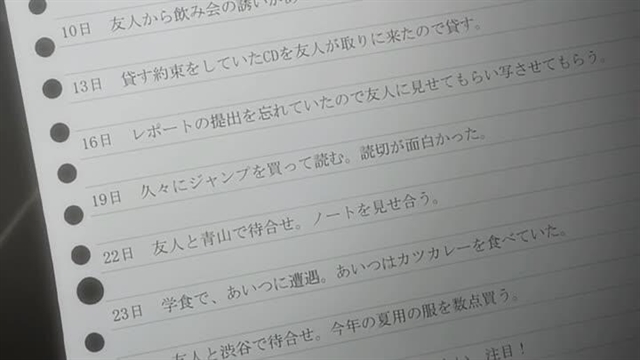 10日 友人から飲み会の誘いが
13日 貸す約束をしていたCDを友人が取りに来たので貸す。
16日 レポートの提出を忘れていたので友人に見せてもらい写させてもらう。
19日 久々にジャンプを買って読む。読切が面白かった。
22日 友人と青山で待合せ。ノートを見せ合う。
23日 学食で、あいつに遭遇。あいつはカツカレーを食べていた。
友人と渋谷で待合せ。今年の夏用の服を数点買う。
注目！